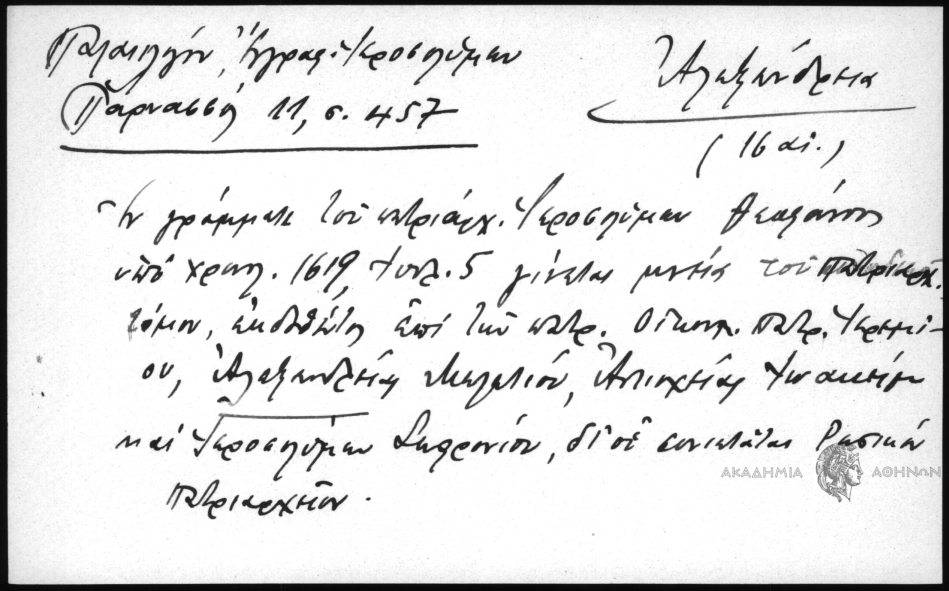 Παρνασσός 11, σ. 457
Ἀλεξάνδρεια
(16 αἰ.)
Ἐν γράμματι τοῦ πατριάρχ. Ἱεροσολύμων Θεοφάνους
ὑπὸ χρονολ. 1619, Ἰουλ. 5 γίνεται μνεία τοῦ πατριαρχ.
τόμου, ἐκδοθέντος ἐπὶ τῶν πατρ. Οἰκουμ. Πατρ. Ἱερεμί-
ου, Ἀλεξανδρείας Μελετίου, Ἀντιοχείας Ἰωακείμ
καὶ Ἱεροσολύμων Σωφρονίου, δι' οὗ συνιστᾶται Ρωσικὸν
πατριαρχεῖον.
ΑΚΑΔΗΜΙΑ ΑΘΗΝΩΝ